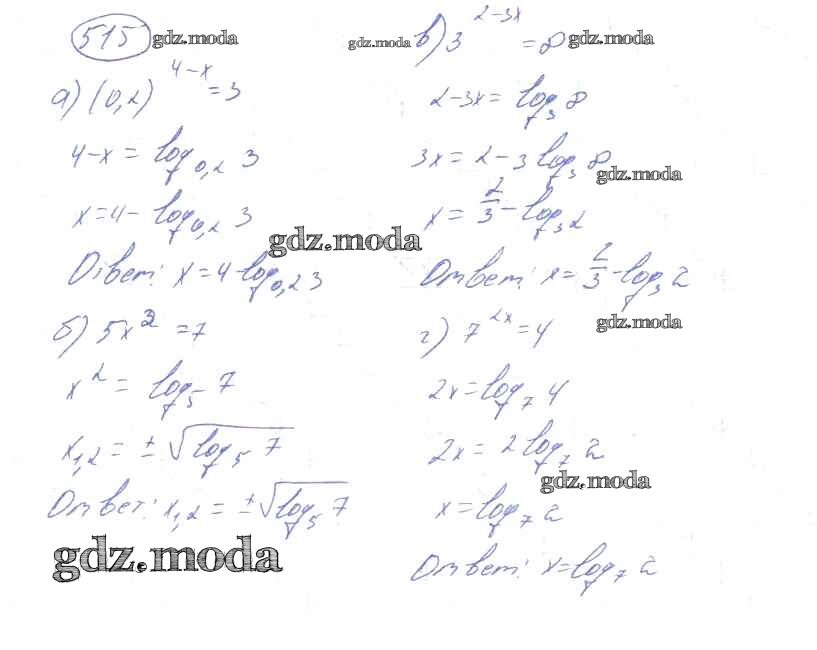 515 gdz.moda
а) (0,2)^{4-x} = 3
4-x = log_{0,2} 3
x = 4 - log_{0,2} 3
gdz.moda
Ответ: x = 4 - log_{0,2} 3
б) 5x^2 = 7
x^2 = log_5 7
x_{1,2} = ± √(log_5 7)
Ответ: x_{1,2} = ± √(log_5 7)
gdz.moda
gdz.moda в) 3^{2-3x} = 8 gdz.moda
2-3x = log_3 8
3x = 2 - 3 log_3 8
gdz.moda
x = 2/3 - log_3 2
Ответ: x = 2/3 - log_3 2
г) 7^{2x} = 4 gdz.moda
2x = log_7 4
2x = 2 log_7 2
gdz.moda
x = log_7 2
Ответ: x = log_7 2